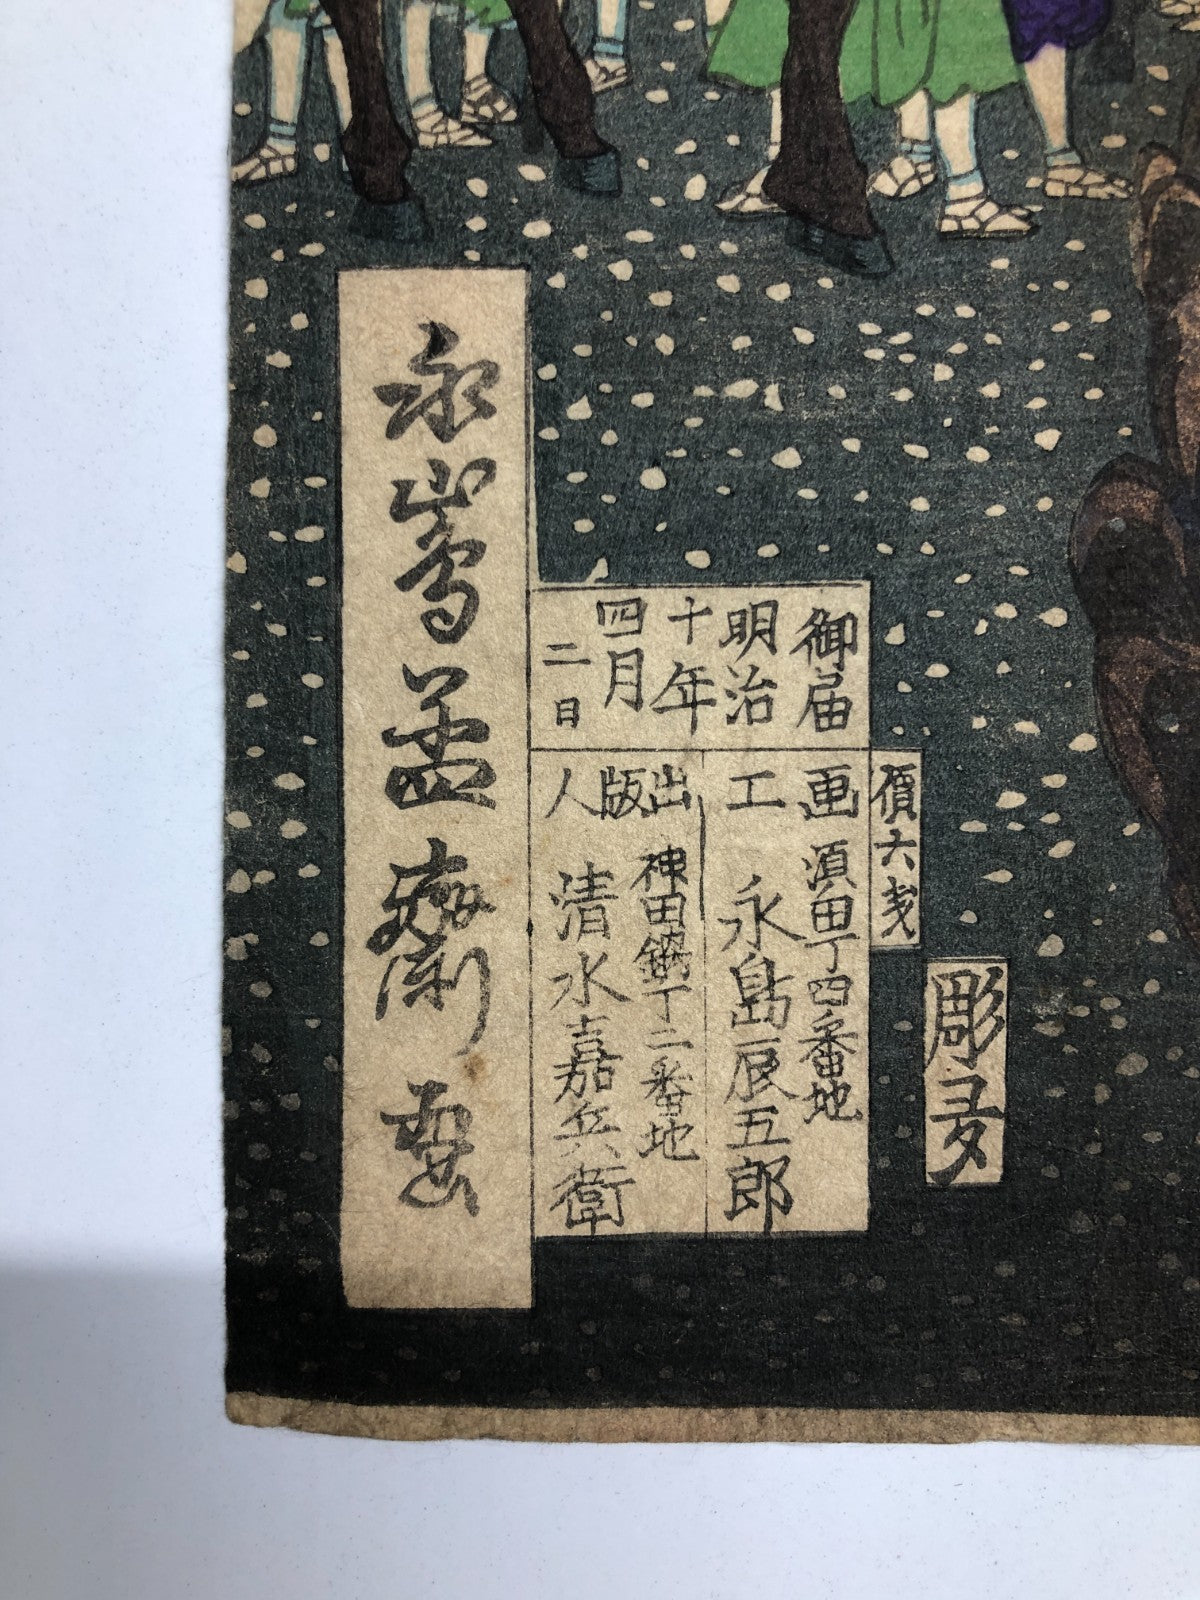 彫叐
價六戋
御届
明治
十年
四月
二日
画工
須田丁四番地
永島辰五郎
出版人
神田鍛丁二番地
清水嘉兵衛
永島孟斎画